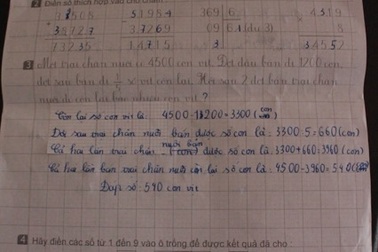 2 Điền số thích hợp vào chỗ chấm
51954
369 6
4319
37269
09 6.1 (dư 3)
8
14715
3
34552
3 Một trại chăn nuôi có 4500 con vịt. Đợt đầu bán đi 1200 con,
đợt sau bán đi 1/5 số vịt còn lại. Hỏi sau 2 đợt bán trại chăn
nuôi đó còn lại bao nhiêu con vịt ?
Còn lại số con vịt là 4500-1200=3300 (con)
Đợt sau trại chăn nuôi bán được số con là: 3300:5=660 (con)
Cả hai lần trại chăn nuôi bán được số con là: 3300+660=3960 (con)
Cả hai lần bán trại chăn nuôi còn lại số con là: 4500-3960=540
Đáp số 540 con vịt
4 Hãy điền các số từ 1 đến 9 vào ô trống để được kết quả đã cho